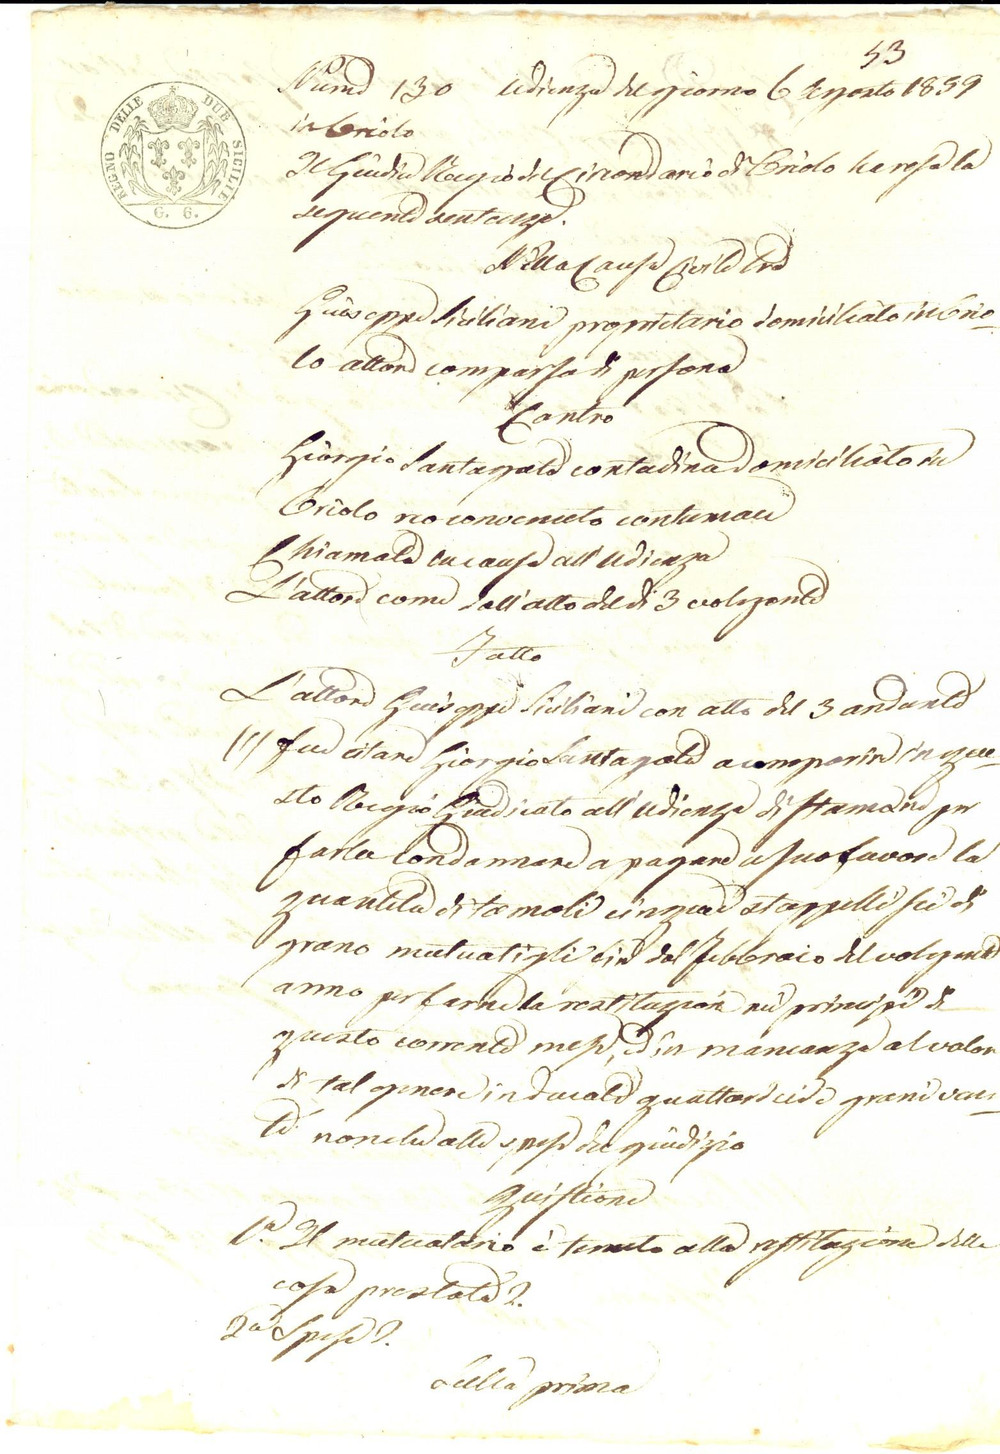 53
Num° 130 Udienza del giorno 6 Agosto 1859
REGNO DELLE DUE SICILIE
G. G.
in Criolo
Il Giudice Regio del Circondario di Criolo ha reso la
seguente sentenza.
Nella Causa Civile tra
Giuseppe Siciliani proprietario domiciliato in Crio-
lo attore comparso di persona
Contro
Giorgio Santagata contadino domiciliato in
Criolo reo convenuto contumace
Chiamata la causa all'udienza
L'attore come dall'atto del dì 3 volgente
Fatto
L'attore Giuseppe Siciliani con atto del 3 andante
fece citare Giorgio Santagata a comparire in que-
sto Regio Giudicato all'udienza di stamane per
farlo condannare a pagare a suo favore la
quantità di tomoli cinque stoppelli sei di
grano mutuatigli fin dal Febbraio del volgente
anno per farne la restituzione nei principi di
questo corrente mese, ed in mancanza al valore
di tal genere in ducati quattordici e grani ven-
ti nonché alle spese del giudizio
Quistione
1.a Il mutuatario è tenuto alla restituzione della
cosa prestata?
2a Spese?
Sulla prima